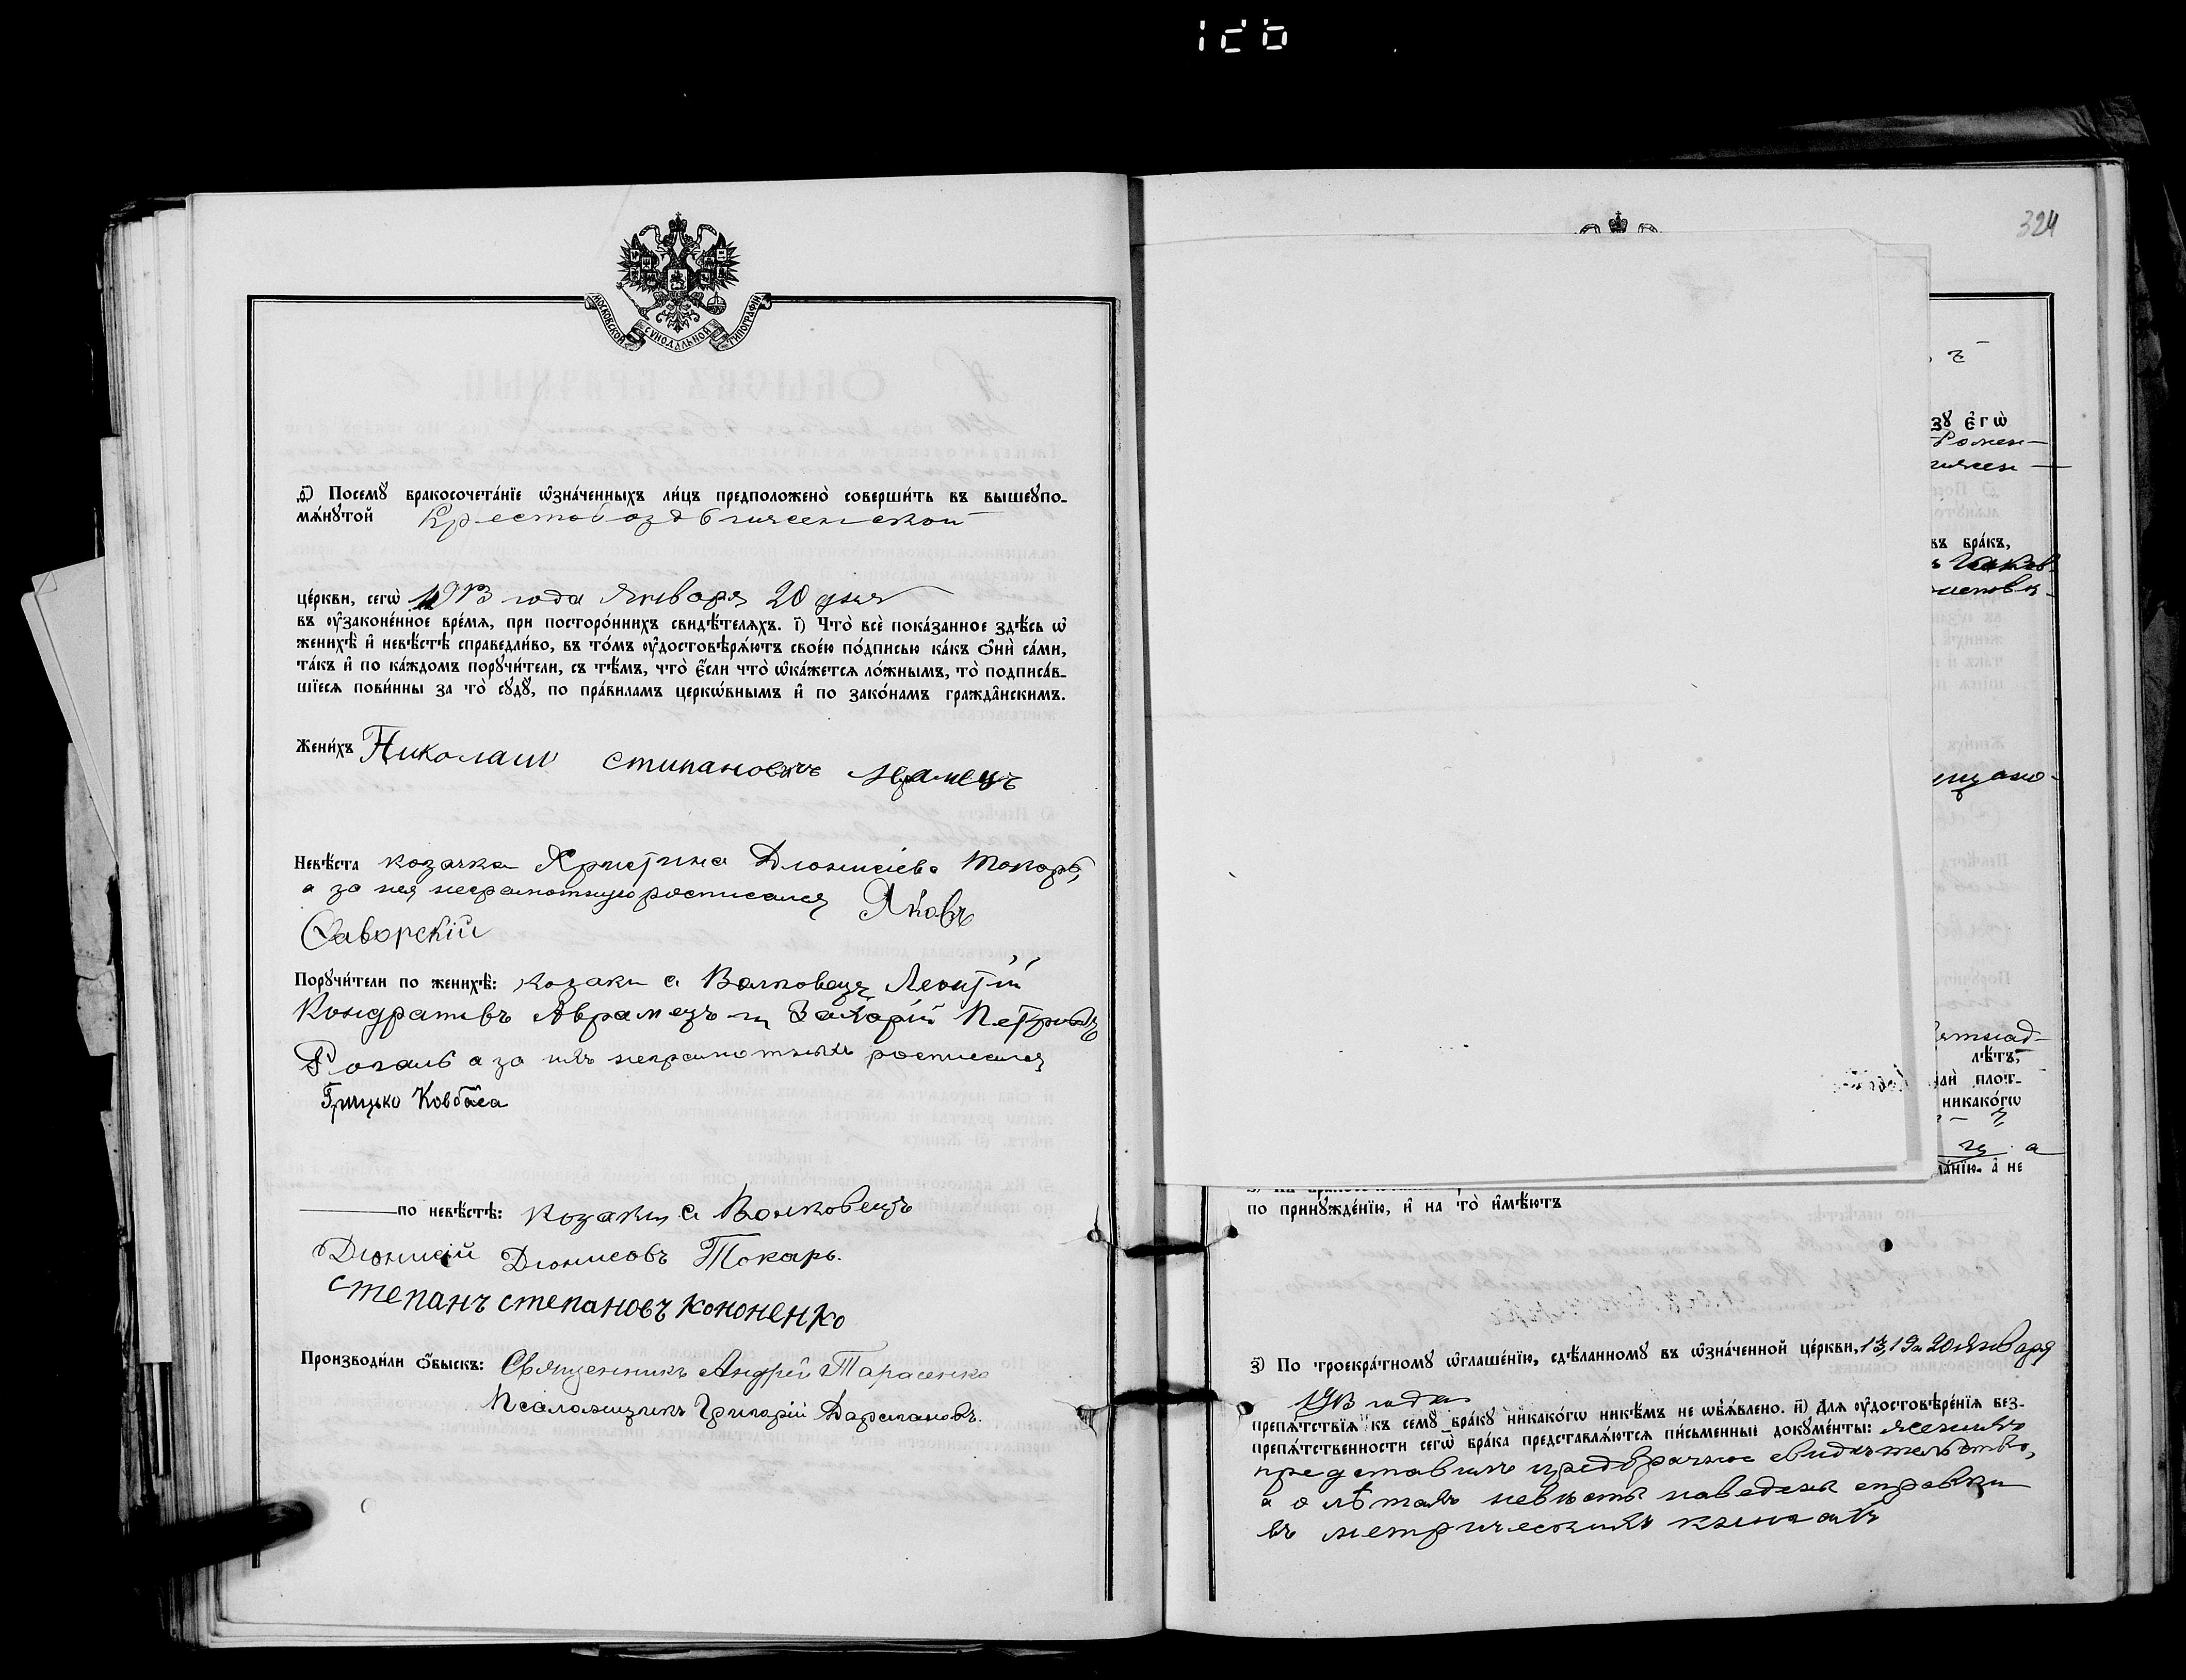 МОСКОВСКОЙ СѴНОДАЛЬНОЙ ТИПОГРАФІИ
Посемꙋ бракосочета́нїе ѡ҆зна́ченныхъ ли́цъ предположено̀ соверши́ть въ вышеꙋпо-
мѧ́нꙋтой Крестовоздвиженской
це́ркви, сегѡ̀ 1913 года Января 20 дня
въ ᲂу҆законе́нное вре́мѧ, при посторо́ннихъ свидѣ́телѧхъ. і҃) Что̀ всѐ пока́занное здѣ́сь ѡ҆
женихѣ̀ и҆ невѣ́стѣ справедли́во, въ то́мъ ᲂу҆достовѣрѧ́ютъ свое́ю по́дписью ка́къ ѻ҆нѝ са́ми,
та́къ и҆ по ка́ждомъ порꙋчи́тели, съ тѣ́мъ, что̀ є҆́сли что̀ ѡ҆ка́жетсѧ ло́жнымъ, то̀ подписа́в-
шїесѧ пови́нны за то̀ сꙋдꙋ̀, по пра́виламъ церкѡ́внымъ и҆ по зако́намъ гражда̑нскимъ.
Жени́хъ Николаи Стипановичъ
Невѣ́ста козачка Христина Діонисіева Токарь,
а за нея неграмотную росписался Яковъ
Яворскій
Порꙋчи́тели по женихѣ̀: козаки с. Волковецъ Леонтій
Кондратовъ Аврамецъ и Захарій Петровъ
Рогаль а за ихъ неграмотныхъ росписался
Грицько Ковбаса
по невѣ́стѣ: козаки с. Волковецъ
Діонисій Діонисовъ Токарь.
Степанъ степановъ кононенко
Производи́ли ѻ҆́быскъ: Священникъ Андрей Тарасенко
Псаломщикъ Григорій
324
зꙋ є҆гѡ̀
Ромен-
въ бра́къ,
лѣ́тъ,
пло́т-
никако́гѡ
ла́нїю, а҆ не
по принꙋжде́нїю, и҆ на то̀ и҆мѣ́ютъ
з҃) По троекра́тномꙋ ѡ҆глаше́нїю, сдѣ́ланномꙋ въ ѡ҆зна́ченной це́ркви, 13, 19 и 20 Января
1913 года
препѧ́тствїѧ къ семꙋ̀ бра́кꙋ никако́гѡ никѣ́мъ не ѡ҆б̾ѧ́влено. и҃) Длѧ̀ ᲂу҆достовѣре́нїѧ без-
препѧ́тственности сегѡ̀ бра́ка представлѧ́ютсѧ пи́сьменные докꙋме́нты: женихъ
представилъ предбрачное свидѣтельство,
а о лѣтахъ невѣсты наведены справки
въ метрическихъ книгахъ